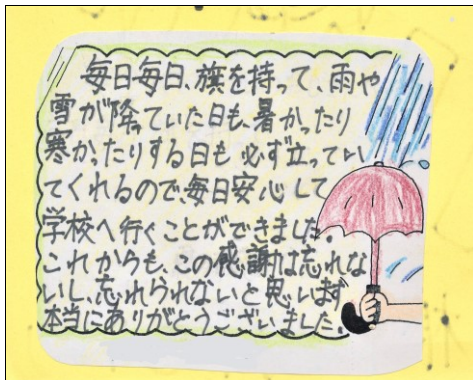 毎日毎日、旗を持って、雨や
雪が降っていた日も、暑かったり
寒かったりする日も必ず立ってい
てくれるので、毎日安心して
学校へ行くことができました。
これからも、この感謝は忘れな
いし、忘れられないと思います
本当にありがとうございました。